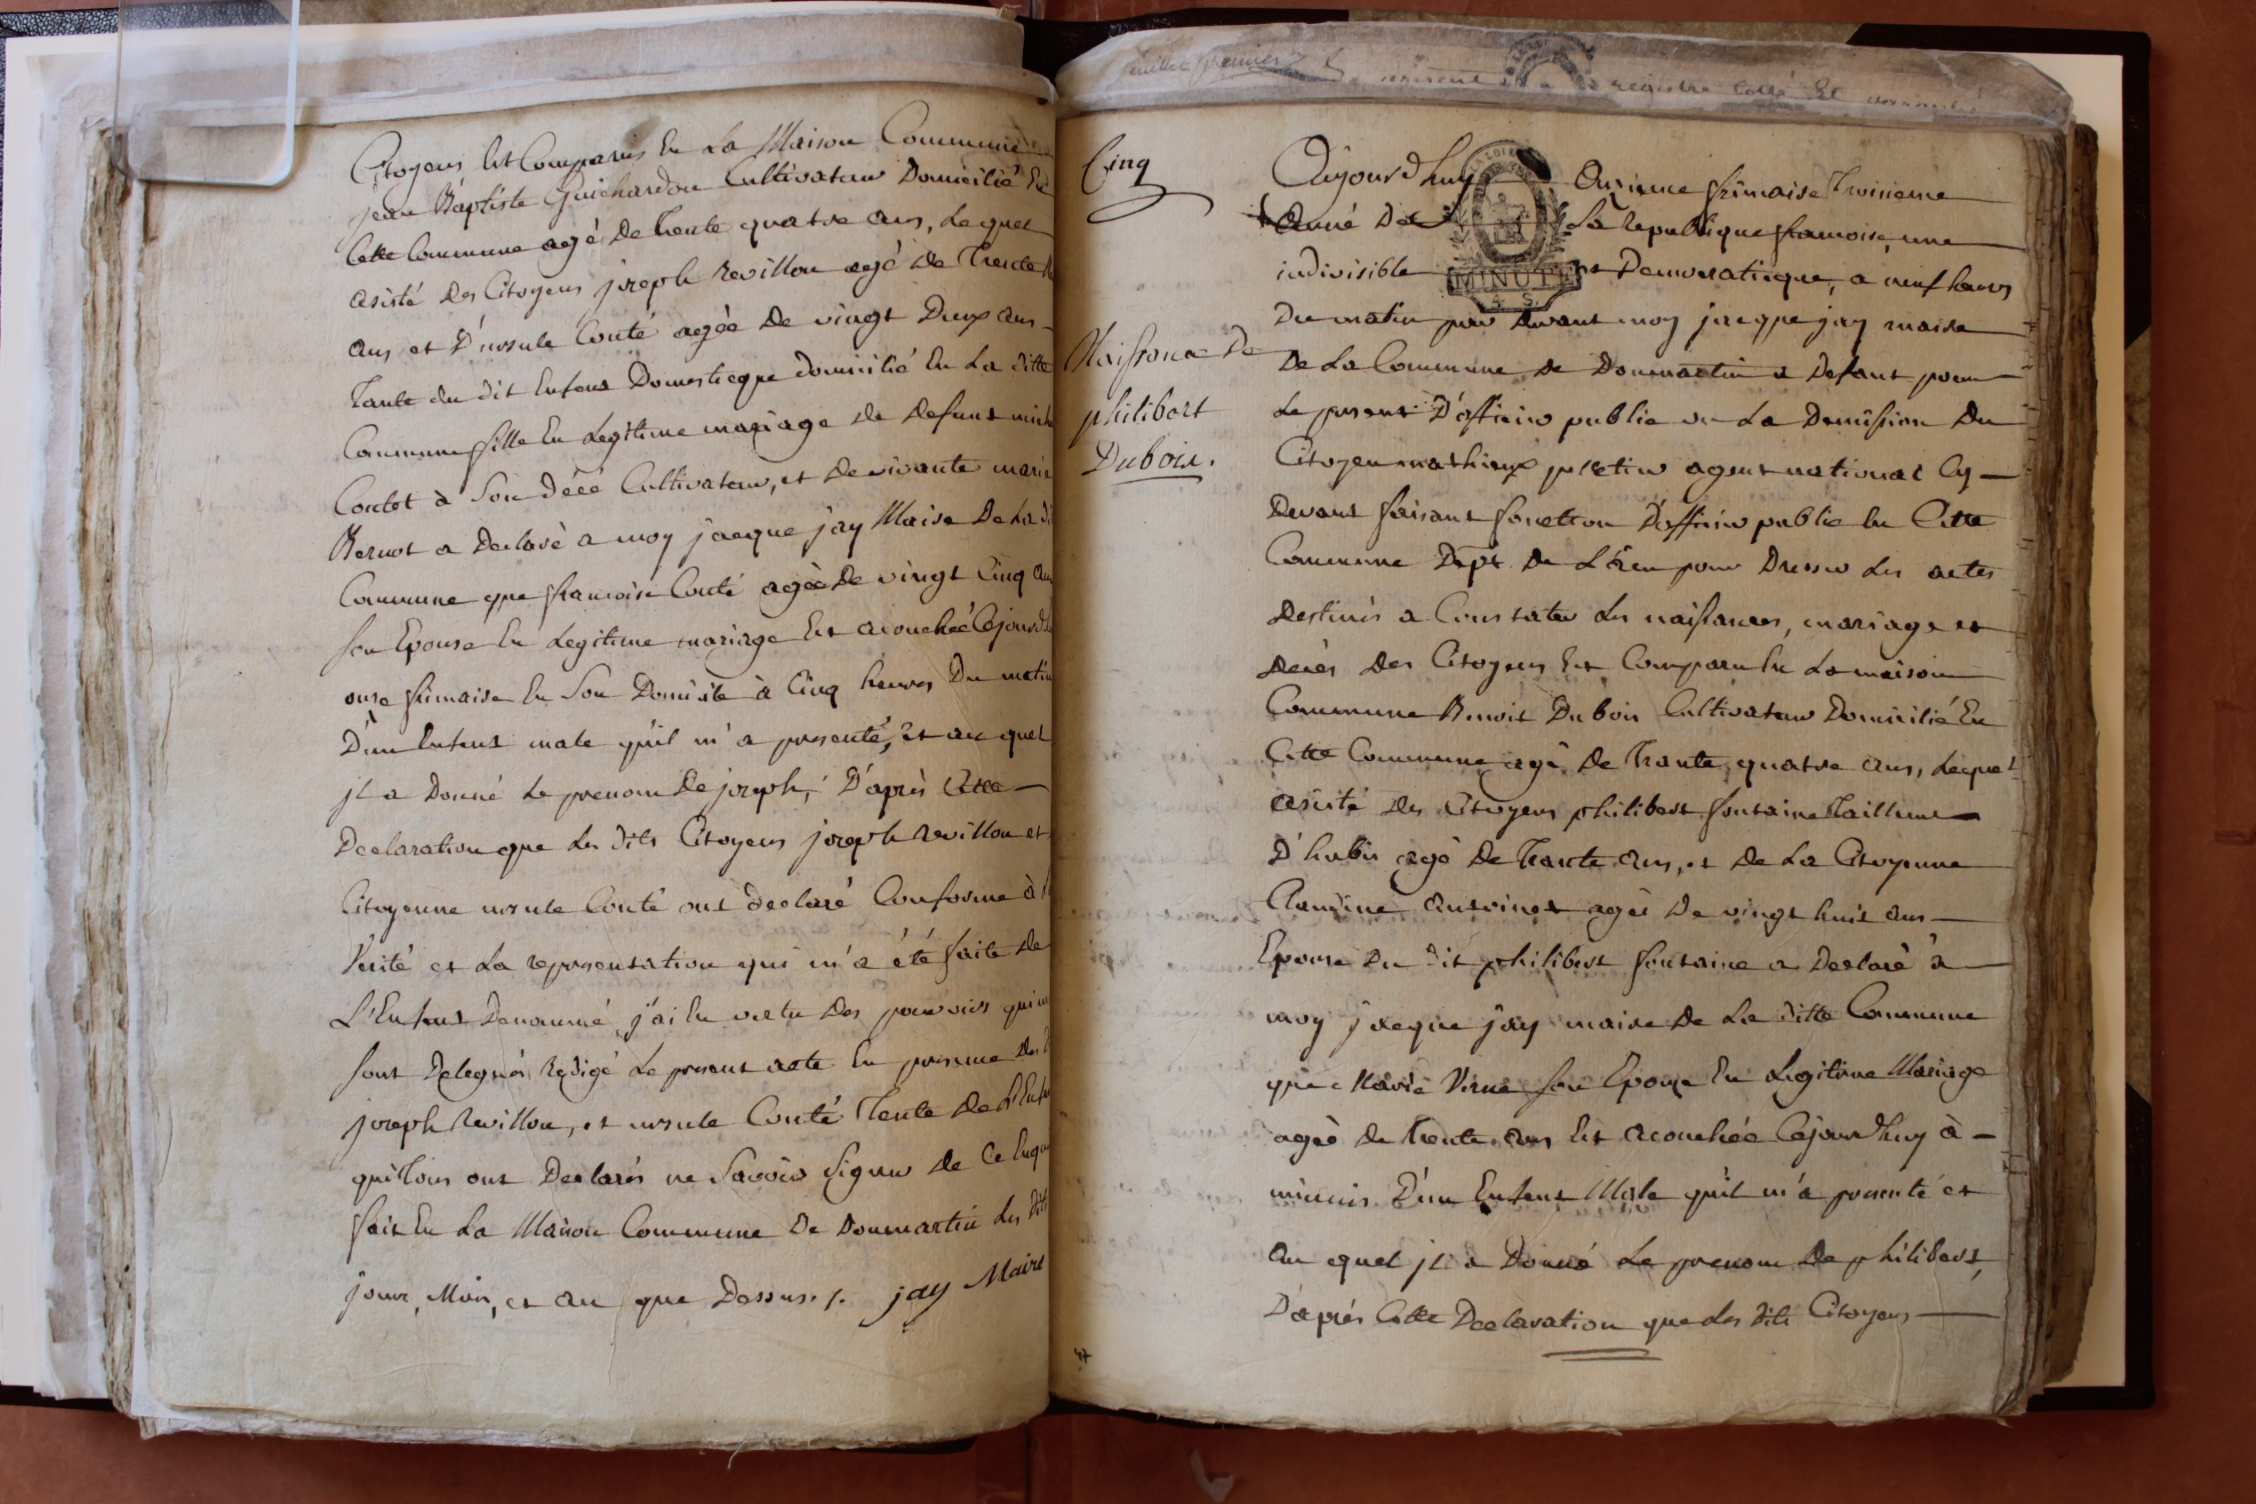 Citoyens, Est Comparus En La Maison Commune
jean Baptiste Guichardon Cultivateur Domicilié En
Cette Commune agé De trente quatre ans, Lequel
asisté Des Citoyens joseph Revillon agé De Trente
ans et D'ursule Conté agée De vingt Deux ans
Tante du dit Enfens Domesticque domicilié En La ditte
Commune fille En Legitime mariage de Defunt
Contet à Son décé Cultivateur, et De vivante marie
Bernot a Declaré a moy jacque jay Maire De La
Commune que francoise Conté agée De vingt Cinq ans
son Epouse En Legitime mariage Est acouchée Cejourd
onze frimaire En Son Domicile à Cinq heures Du matin
D'un Enfent male qu'il m'a presenté, Et au quel
jl a Donné Le prenom De joseph, D'aprés Cette
Declaration que Les dits Citoyens joseph Revillon et
Citoyenne ursule Conté ont declaré Conforme à
Verité et La representation qui m'a été faite de
L'Enfent Denommé, j'ai En vertu Des pouvoirs qui m
sont Delegués Redigé Le present acte En presence Des
joseph Revillon, et ursule Conté Tente De L'Enfen
qui tous ont Declarés ne Savoir Signer De Ce Enquis
fait En La Maison Commune De Donmartin Les dits
jour, Mois, et an que Dessus ./. jay Maire
feuillet premier
present registre Cotté Et
Cinq
Naissance De
philibert
Dubois.
Aujourd'huy Onzieme frimaire Troisieme
Anné De La Republique francoise, une
indivisible et Democraticque, a neuf heures
Du matin par devant moy jacque jay maire
De La Commune de Donmartin a Defaut pour
Le present D'officier public vu La Demission Du
Citoyen mathieux agent national Cy
Devant faisant fonction D'officier public En Cette
Commune Dept. De L'Ain pour Dresser Les actes
Destinés a Constater Les naissances, mariage et
décès Des Citoyens Est Comparu En La maison
Commune Benoit Dubois Cultivateur Domicilié En
Cette Commune agé De Trante quatre ans, Lequel
asisté Des Citoyens philibert fontaine Tailleur
D'habis agé De Trante ans, et De La Citoyenne
Claudine agée De vingt huit ans
Epouse Du dit philibert fontaine a Declaré à
moy jacque jay maire De La ditte Commune
que Marie Verne son Epouse En Legitime Mariage
agée De trente ans Est acouchée Cejourd'huy à
minuis D'un Enfent Male qu'il m'a presenté et
au quel jl a Donné Le prenom De philibert,
D'aprés Cette Declaration que Les dits Citoyens
MINUTE
4 S.
47